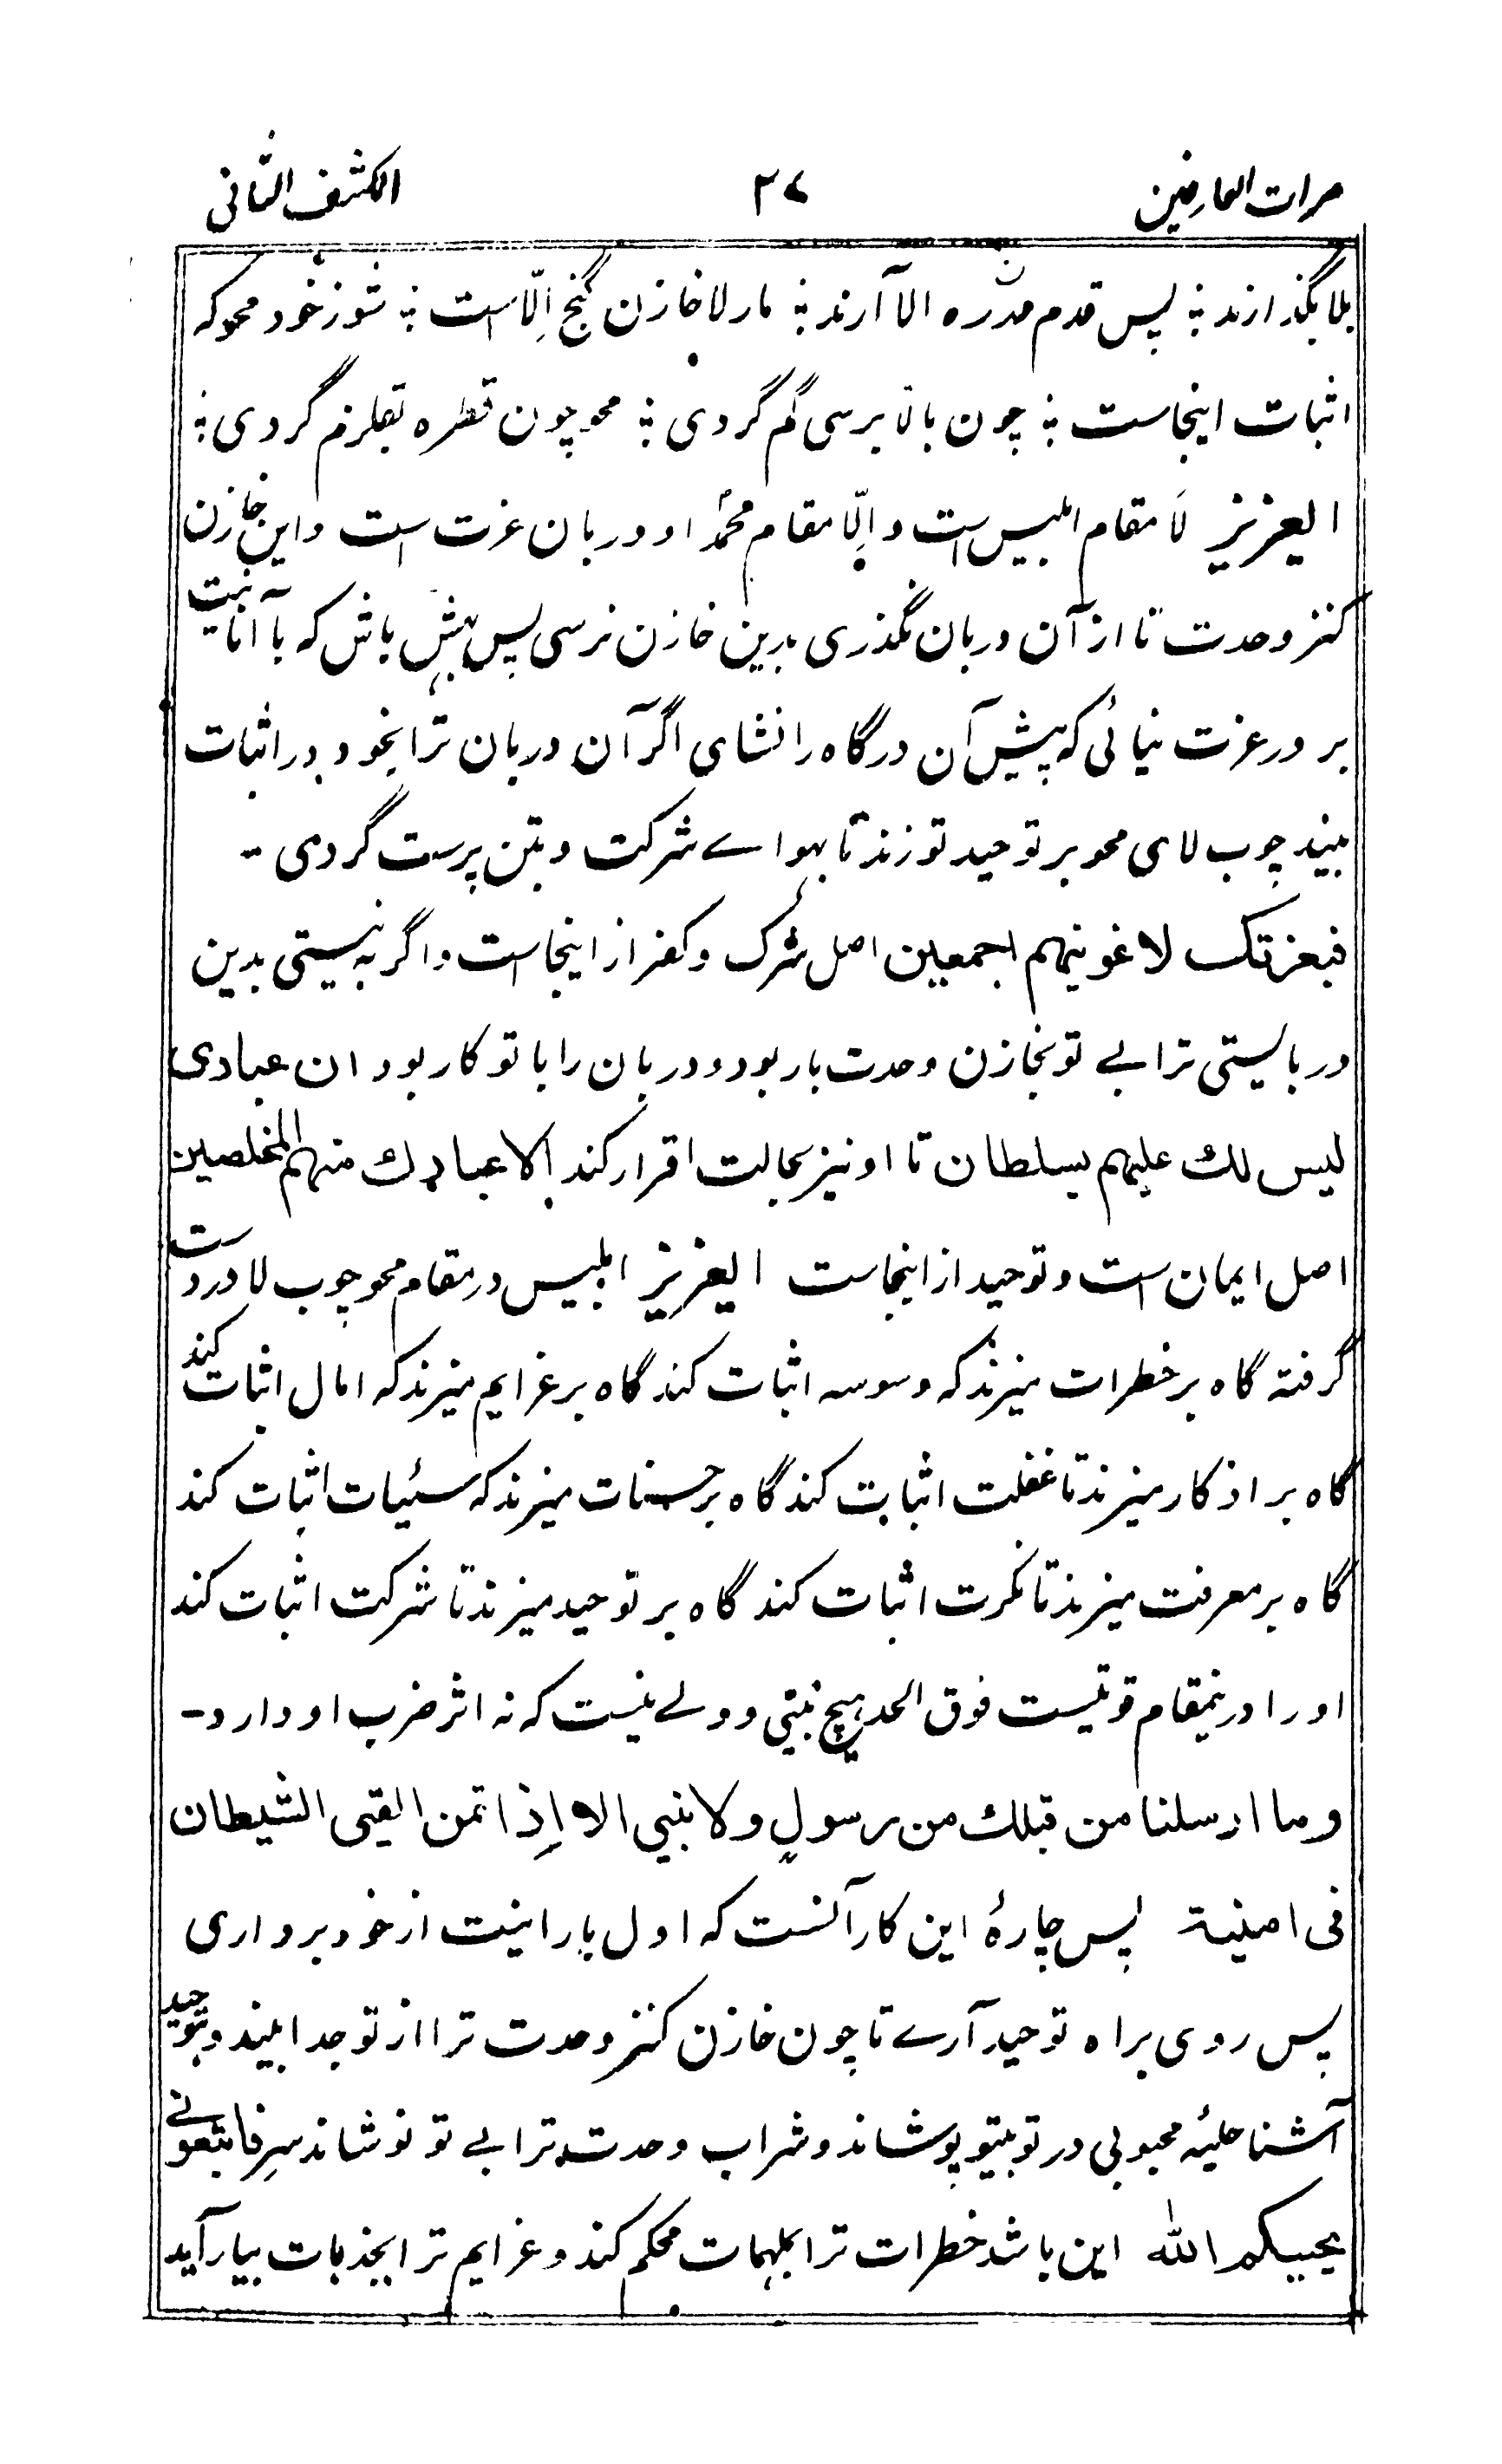 مرات العارفین ۲۷ الکشف الثانی
بلا بگذارند ؛ پس قدم در ره الا آرند ؛ مار لا خازن گنج اِلّا است ؛ شو ز خود محو که
اثبات اینجاست ؛ چون بالا برسی گم گردی ؛ محو چون قطره بقلزم گردی ؛
ایعزیز لَا مقام ابلیس است و اِلّا مقام محمدؐ او دربان عزت است و این خازن
کنز وحدت تا از آن دربان نگذری بدین خازن نرسی پس بهش باش که با آنانیت
بر در عزت نیائی که پیش آن درگاه را نشای اگر آن دربان ترا بخود در اثبات
بیند چوب لای محو بر توحید تو زند تا بهواے شرکت و بتن پرست گردی -
فبعزتک لاغوینهم اجمعین اصل شرک و کفر از اینجاست و اگر به نیستی بدین
در بایستی ترا بے تو بخازن وحدت بار بود و دربان را با تو کار بود ان عبادی
لیس لك علیهم بسلطان تا او نیز بحالت اقرار کند الا عبادك منهم المخلصین
اصل ایمان است و توحید از اینجاست ایعزیز ابلیس در مقام محو چوب لا در دست
گرفته گاه بر خطرات میزند که وسوسه اثبات کند گاه بر عزایم میزند که امال اثبات کند
گاه بر اذکار میزند تا غفلت اثبات کند گاه بر حسنات میزند که سئیات اثبات کند
گاه بر معرفت میزند تا نکرت اثبات کند گاه بر توحید میزند تا شرکت اثبات کند
او را درینمقام قوتیست فوق الحد هیچ نبیّی و ولے نیست که نه اثر ضرب او دارد -
وما ارسلنا من قبلك من رسولٍ ولا نبی الا اِذا تمن القی الشیطان
فی امنیة پس چارهٔ این کار آنست که اول بار انیت از خود برداری
پس روی براه توحید آرے تا چون خازن کنز وحدت ترا از تو جدا بیند و بتوحید
آشنا حلیهٔ محبوبی در تو بتو پوشاند و شراب وحدت ترا بے تو نوشاند سرِ فابتعونے
یحببکم الله این باشد خطرات ترا بلهمات محکم کند و عزایم ترا بجذبات بیارآید